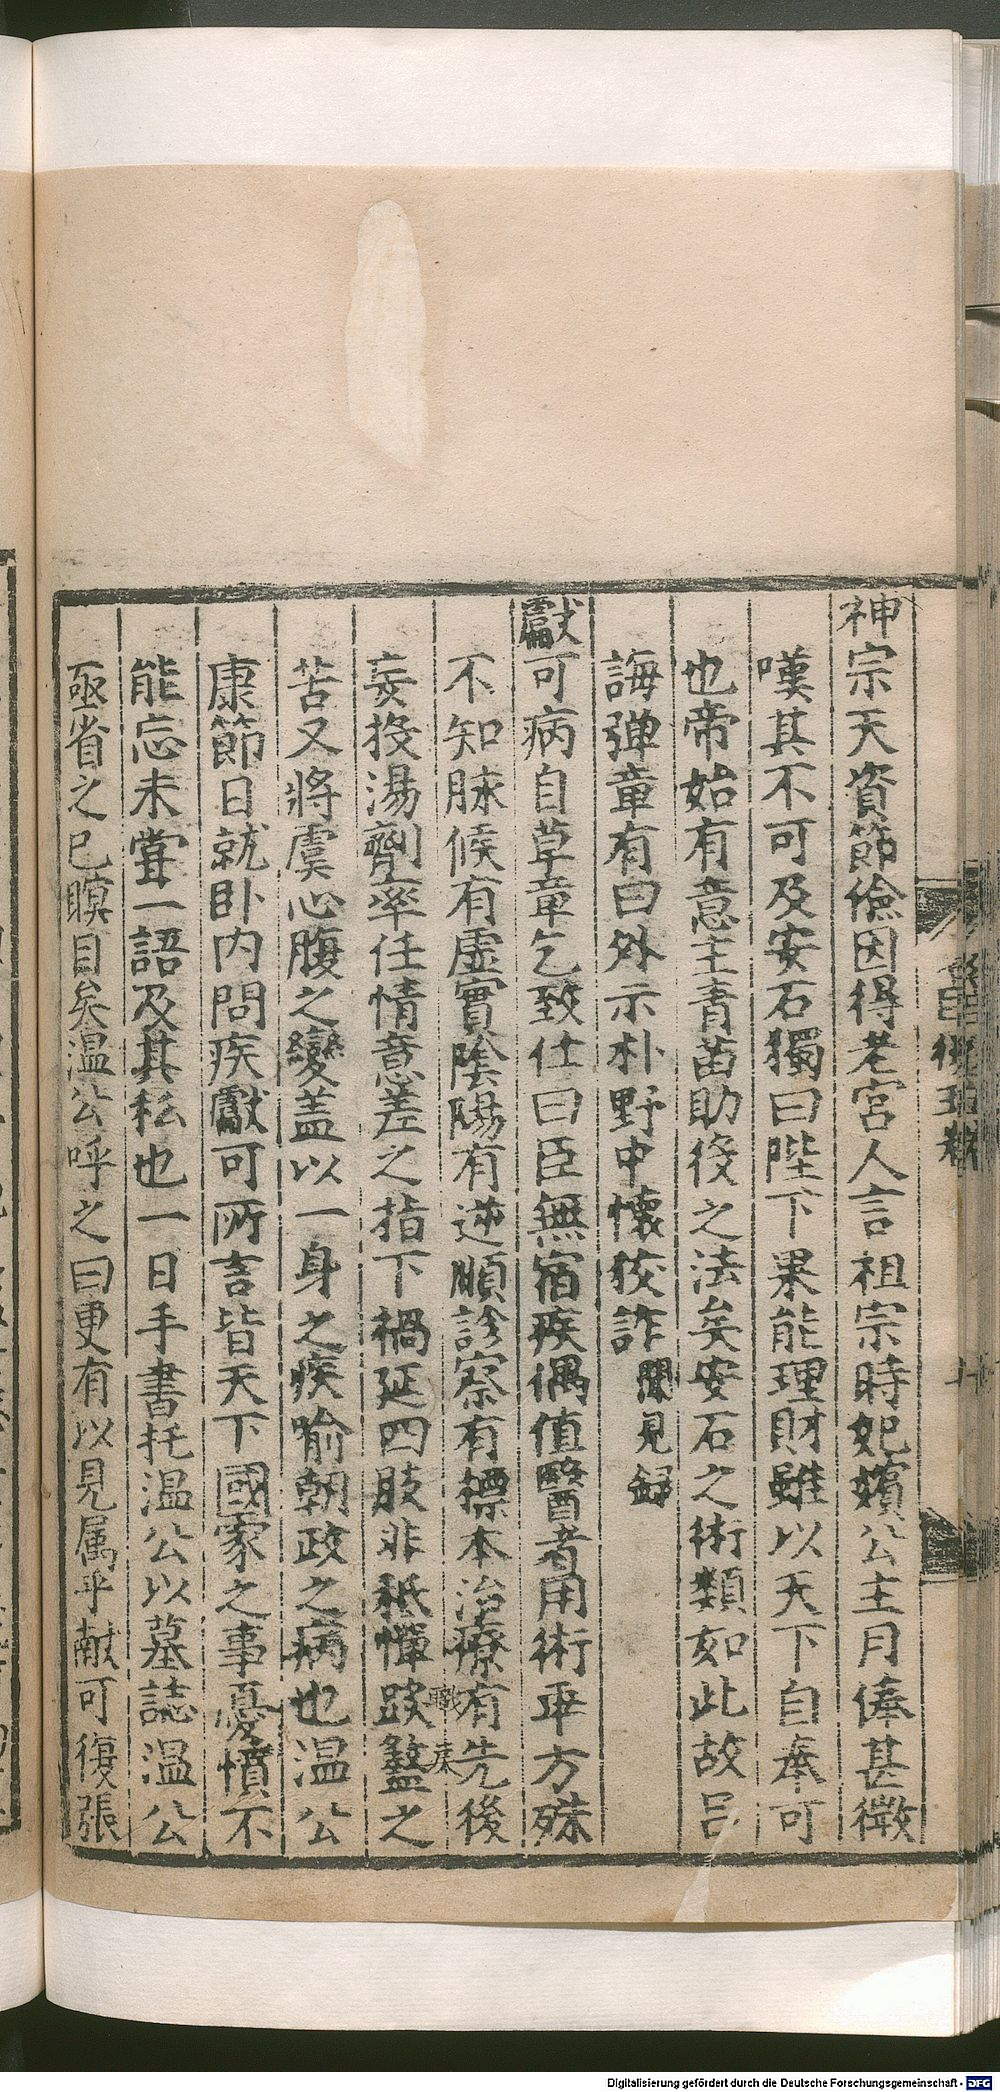 神宗天資節儉因得老宮人言祖宗時妃嬪公主月俸甚微
嘆其不可及安石獨曰陛下果能理財雖以天下自奉可
也帝始有意主青苗助役之法矣安石之術類如此故呂
誨彈章有曰外示朴野中懷狡詐聞見錄
獻可病自草章乞致仕曰臣無宿疾偶値醫者用術乖方殊
不知脉候有虛實陰陽有逆順診察有摽本治療有先後
妄投湯劑率任情意差之指下禍延四肢非秪憚𨂂盭之
苦又將虞心腹之變盖以一身之疾喻朝政之病也温公
康節日就卧內問疾獻可所言皆天下國家之事憂憤不
能忘未嘗一語及其私也一日手書托温公以墓誌温公
亟省之已瞑目矣温公呼之曰更有以見属乎献可復張
Digitalisierung gefördert durch die Deutsche Forschungsgemeinschaft - DFG